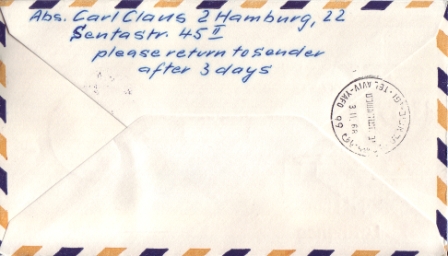 Abs. Carl Claus 2 Hamburg, 22
Sentastr. 45 II
please return to sender
after 3 days
TEL AVIV-YAFO
3.11.66